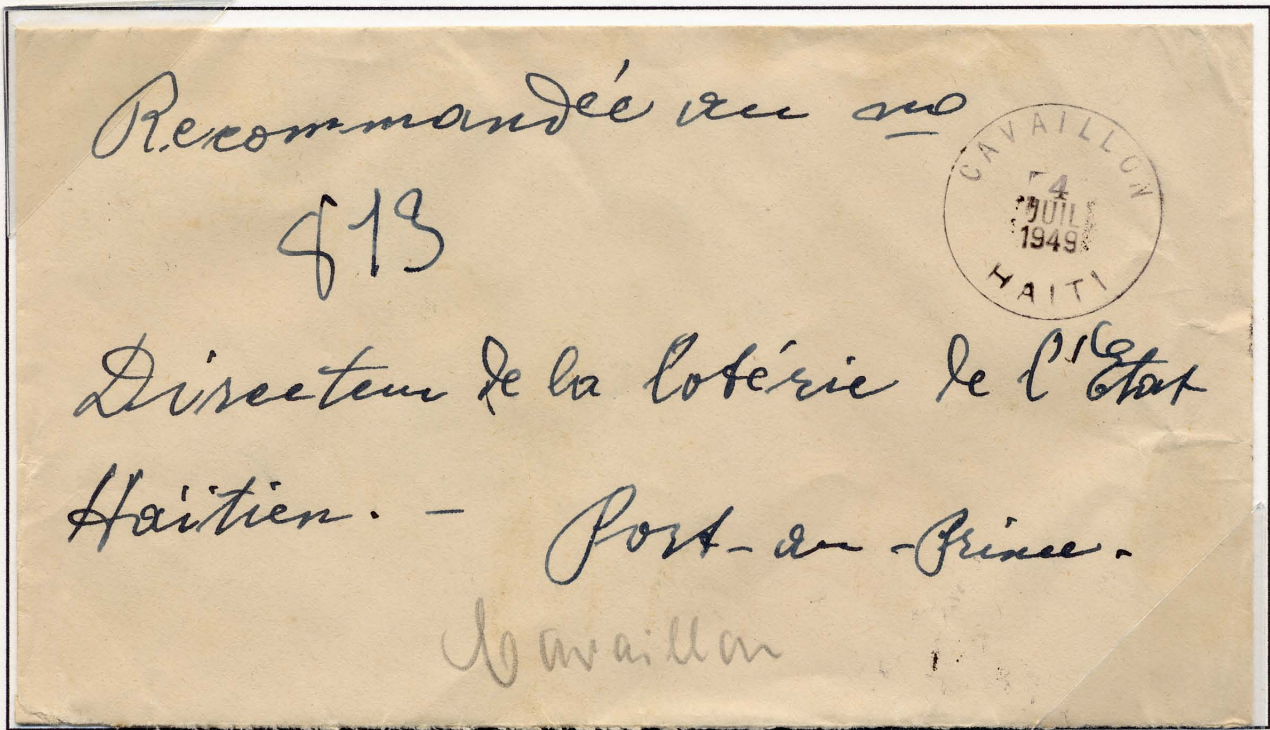 Recommandée au no
813
CAVAILLON
4
JUIL
1949
HAITI
Directeur de la lotérie de l'Etat
Haïtien. –
Port-au-Prince.
Cavaillon